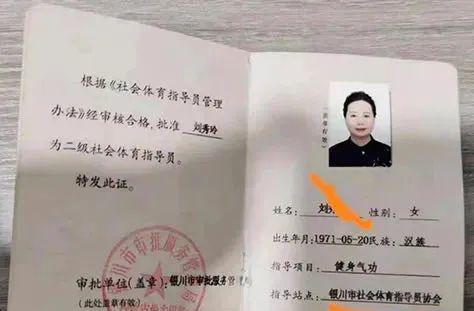 根据《社会体育指导员管理
办法》经审核合格，批准 刘秀玲
为二级社会体育指导员。
特发此证。
银川市审批服务管理局
审批单位(盖章):银川市审批服务管理局
(此处盖章有效)
姓名: 刘 性别: 女
出生年月:1971-05-20民族: 汉族
指导项目: 健身气功
指导站点:银川市社会体育指导员协会